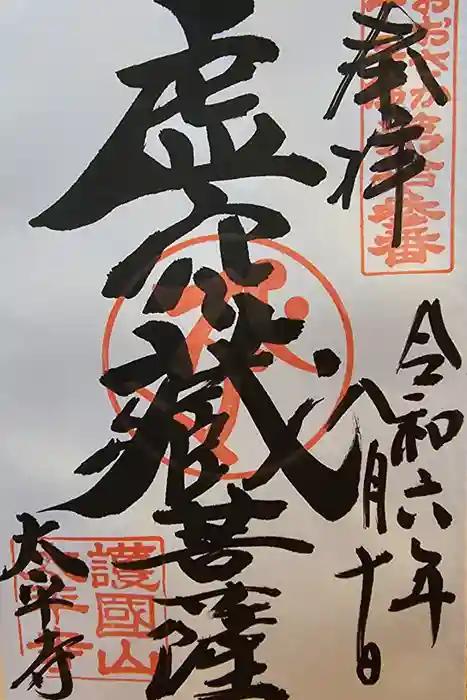 奉拝
令和六年
八月十日
虚空蔵菩薩
太平寺
護國山
太平寺